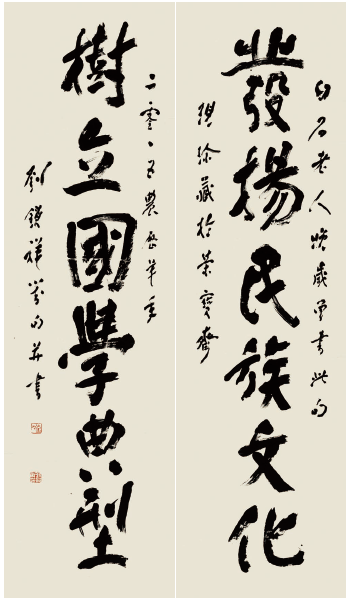 白石老人晚歲曾書此句
發揚民族文化
現珍藏於榮寶齋
二零一五農曆羊年
樹立國學典型
劉鎮祥句并書